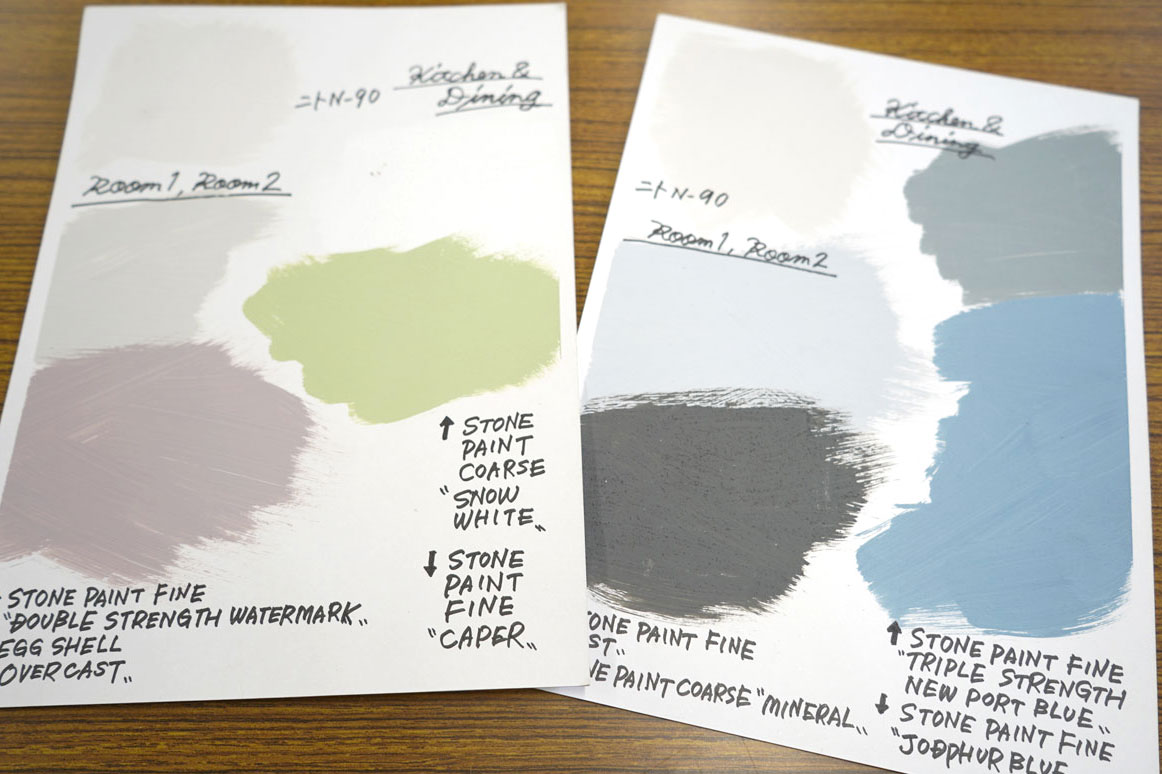 Kitchen &
Dining
ニトN-90
Room1, Room2
↑ STONE
PAINT
COARSE
"SNOW
WHITE„
↓ STONE
PAINT
FINE
"CAPER„
STONE PAINT FINE
"DOUBLE STRENGTH WATERMARK„
EGG SHELL
OVERCAST„
Kitchen &
Dining
ニトN-90
Room1, Room2
PAINT FINE
PAINT COARSE "MINERAL„
↑ STONE PAINT FINE
"TRIPLE STRENGTH
NEW PORT BLUE„
↓ STONE PAINT FINE
"JODPHUR BLUE